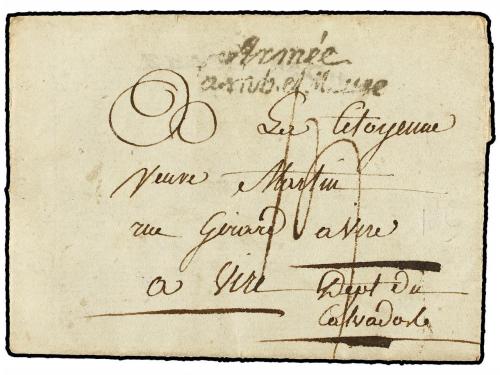 Armée
Samb. et Meuse
La Citoyenne
veuve Martin
rue Gérard a vire
a Vire
Dept du
Calvados